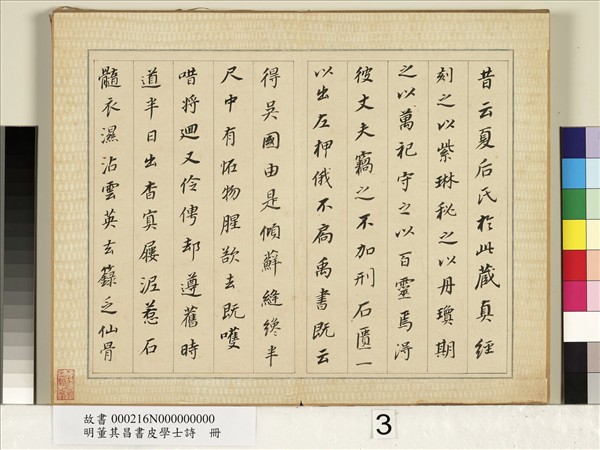 昔云夏后氏於此藏真經
刻之以紫琳秘之以丹瓊期
之以萬祀守之以百靈焉得
彼丈夫竊之不加刑石匱一
以出左神俄不扃禹書既云
得吳國由是傾蘚縫纔半
尺中有恠物腥欲去既嚄
唶將迴又伶俜却遵舊時
道半日出杳冥屨泥惹石
髓衣濕沾雲英玄籙乏仙骨
故書 000216N000000000
明董其昌書皮學士詩 冊
3